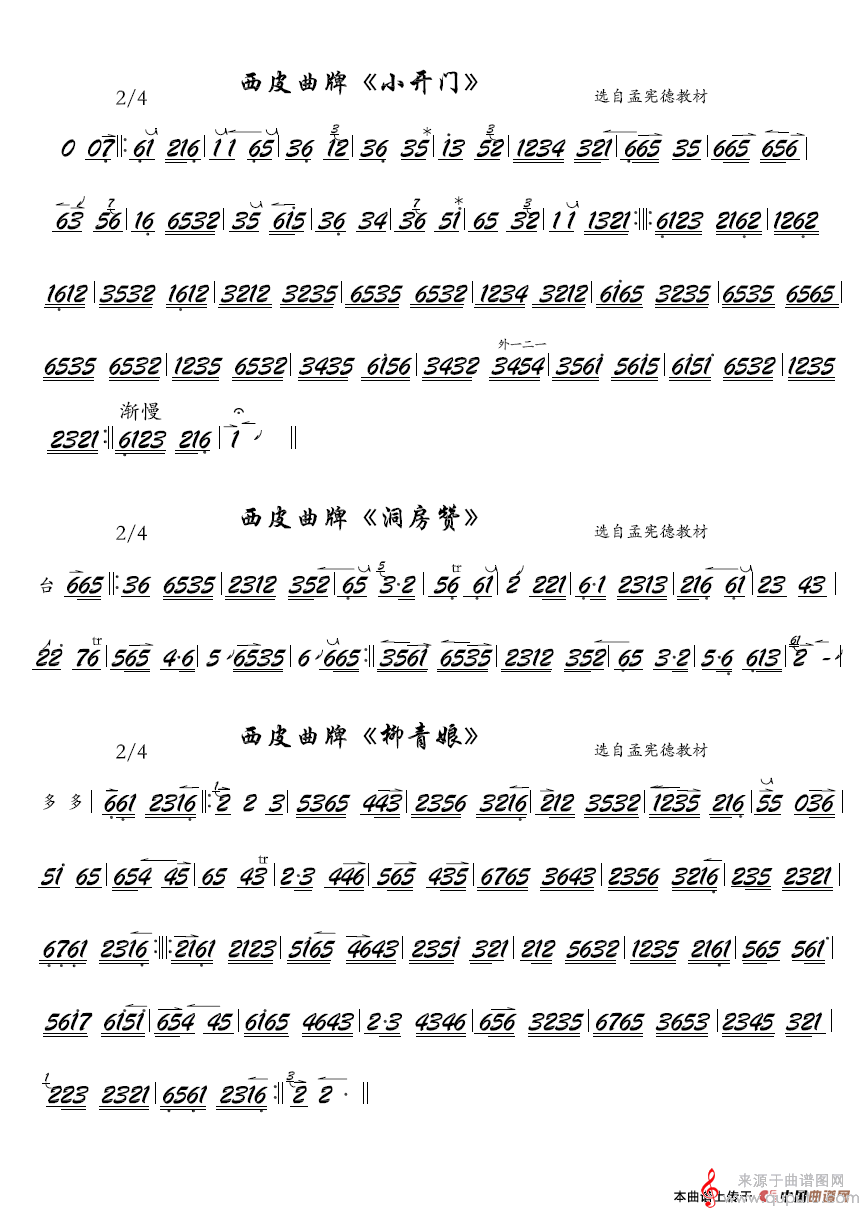 西皮曲牌《小开门》
2/4 选自孟宪德教材
0 07‖:61 216|11 65|36 312|36 35*|i3 352|1234 321|665 35|665 656|
63 756|16 6532|35 6i5|36 34|736 5i*|65 332|11 1321:‖:6123 2162|1262
1612|3532 1612|3212 3235|6535 6532|1234 3212|6i65 3235|6535 6565|
外一二一
6535 6532|1235 6532|3435 6i56|3432 3454|356i 5615|6i5i 6532|1235
渐慢
2321:‖6123 216|1 ‖
西皮曲牌《洞房赞》
2/4 选自孟宪德教材
台 665‖:36 6535|2312 352|65 53·2|56 tr 61|2 221|6·1 2313|216 61|23 43|
22 76 tr|565 4·6|5 6535|6 665:‖3561 6535|2312 352|65 3·2|5·6 613|612 -
西皮曲牌《柳青娘》
2/4 选自孟宪德教材
多 多|661 2316‖:12 2 3|5365 443|2356 3216|212 3532|1235 216|55 036|
5i 65|654 45|65 43 tr|2·3 446|565 435|6765 3643|2356 3216|235 2321|
6761 2316:‖:2161 2123|5i65 4643|235i 321|212 5632|1235 2161|565 56i|
56i7 6i5i|654 45|6i65 4643|2·3 4346|656 3235|6765 3653|2345 321|
1223 2321|6561 2316:‖32 2·‖
来源于曲谱图网
本曲谱上传于 中国曲谱网